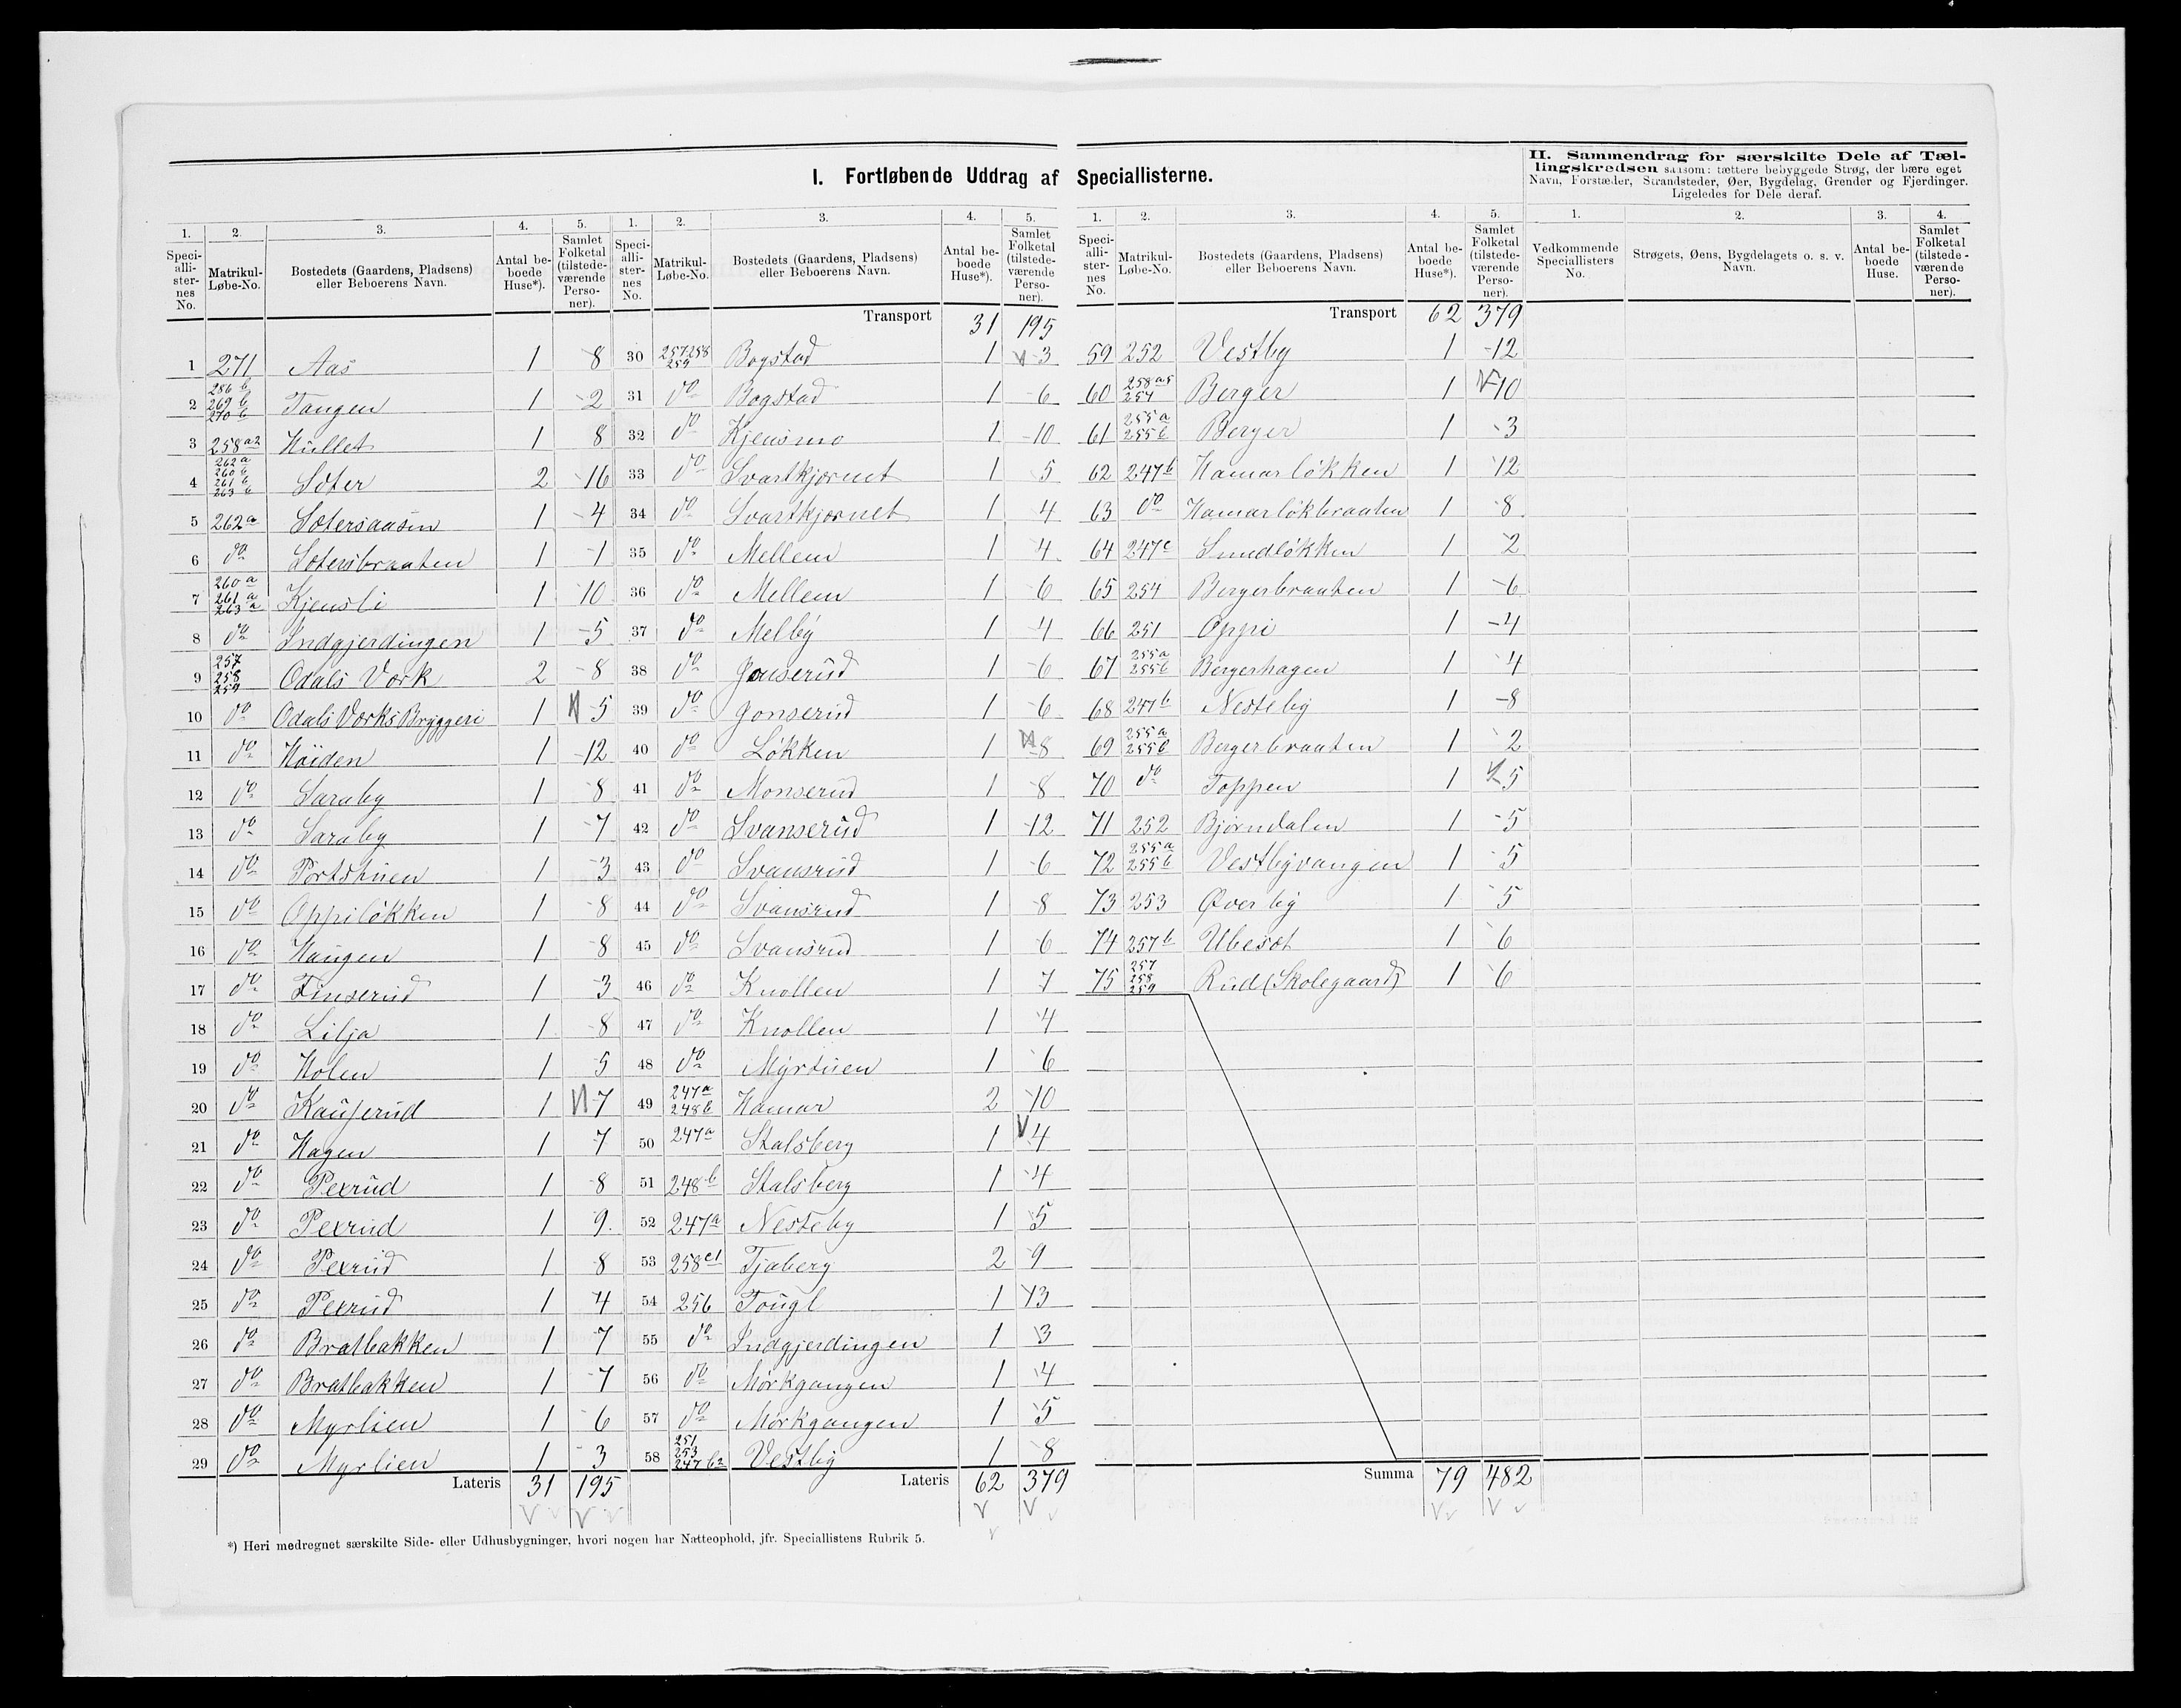 I. Fortløbende Uddrag af Speciallisterne.
II. Sammendrag for særskilte Dele af Tællingskredsen saasom: tættere bebyggede Strøg, der bære eget
Navn, Forstæder, Strandsteder, Øer, Bygdelag, Grender og Fjerdinger.
Ligeledes for Dele deraf.
1. 2. 3. 4. 5.
Speciallisternes No. Matrikul-Løbe-No. Bostedets (Gaardens, Pladsens) eller Beboerens Navn. Antal beboede Huse*). Samlet Folketal (tilstedeværende Personer).
1 271 Aas 1 8
2 286 b 269 b 270 b Tangen 1 2
3 258 a2 Hullet 1 8
4 262 a 260 b 261 b 263 b Sæter 2 16
5 262 a Sætersaasen 1 4
6 do Sætersbraaten 1 1
7 260 a 261 a 263 a Kjensli 1 10
8 do Indgjerdingen 1 5
9 257 258 259 Odals Værk 2 8
10 do Odals Værks Bryggeri 1 5
11 do Haiden 1 12
12 do Saraby 1 8
13 do Saraby 1 7
14 do Portstuen 1 3
15 do Oppiløkken 1 8
16 do Haugen 1 8
17 do Finserud 1 3
18 do Lilja 1 8
19 do Holen 1 5
20 do Kauserud 1 7
21 do Hagen 1 7
22 do Pexrud 1 8
23 do Pexrud 1 9
24 do Pexrud 1 8
25 do Pexrud 1 4
26 do Bratbakken 1 7
27 do Bratbakken 1 7
28 do Myrlien 1 6
29 do Myrlien 1 3
Lateris 31 195
1. 2. 3. 4. 5.
Speciallisternes No. Matrikul-Løbe-No. Bostedets (Gaardens, Pladsens) eller Beboerens Navn. Antal beboede Huse*). Samlet Folketal (tilstedeværende Personer).
Transport 31 195
30 257 258 259 Bogstad 1 3
31 do Bogstad 1 6
32 do Kjensmo 1 10
33 do Svartkjærnet 1 5
34 do Svartkjærnet 1 4
35 do Mellem 1 4
36 do Mellem 1 6
37 do Melby 1 4
38 do Gonserud 1 6
39 do Gonserud 1 6
40 do Løkken 1 8
41 do Monserud 1 8
42 do Svanserud 1 12
43 do Svansrud 1 6
44 do Svansrud 1 8
45 do Svansrud 1 6
46 do Knollen 1 7
47 do Knollen 1 4
48 do Myrstuen 1 6
49 247 a 248 b Hamar 2 10
50 247 a Stalsberg 1 4
51 248 b Stalsberg 1 4
52 247 a Nesteby 1 5
53 258 c1 Tjaberg 2 9
54 256 Tougl 1 13
55 do Indgjerdingen 1 3
56 do Mørkgangen 1 4
57 do Mørkgangen 1 5
58 251 253 247 b2 Vestby 1 8
Lateris 62 379
1. 2. 3. 4. 5.
Speciallisternes No. Matrikul-Løbe-No. Bostedets (Gaardens, Pladsens) eller Beboerens Navn. Antal beboede Huse*). Samlet Folketal (tilstedeværende Personer).
Transport 62 379
59 252 Vestby 1 12
60 258 a5 254 Berger 1 10
61 255 a 255 b Berger 1 3
62 247 b Hamarløkken 1 12
63 do Hamarløkbraaten 1 8
64 247 c Smedløkken 1 2
65 254 Bergerbraaten 1 6
66 251 Oppi 1 4
67 255 a 255 b Bergerhagen 1 4
68 247 b Nesteby 1 8
69 255 a 255 b Bergerbraaten 1 2
70 do Toppen 1 5
71 252 Bjørndalen 1 5
72 255 a 255 b Vestbyvangen 1 5
73 253 Øverby 1 5
74 257 b Ubesat 1 6
75 257 258 259 Rud (Skolegaard) 1 6
Summa 79 482
1. 2. 3. 4.
Vedkommende Speciallisters No. Strøgets, Øens, Bygdelagets o. s. v. Navn. Antal beboede Huse. Samlet Folketal (tilstedeværende Personer).
*) Heri medregnet særskilte Side- eller Udhusbygninger, hvori nogen har Natteophold, jfr. Speciallistens Rubrik 5.